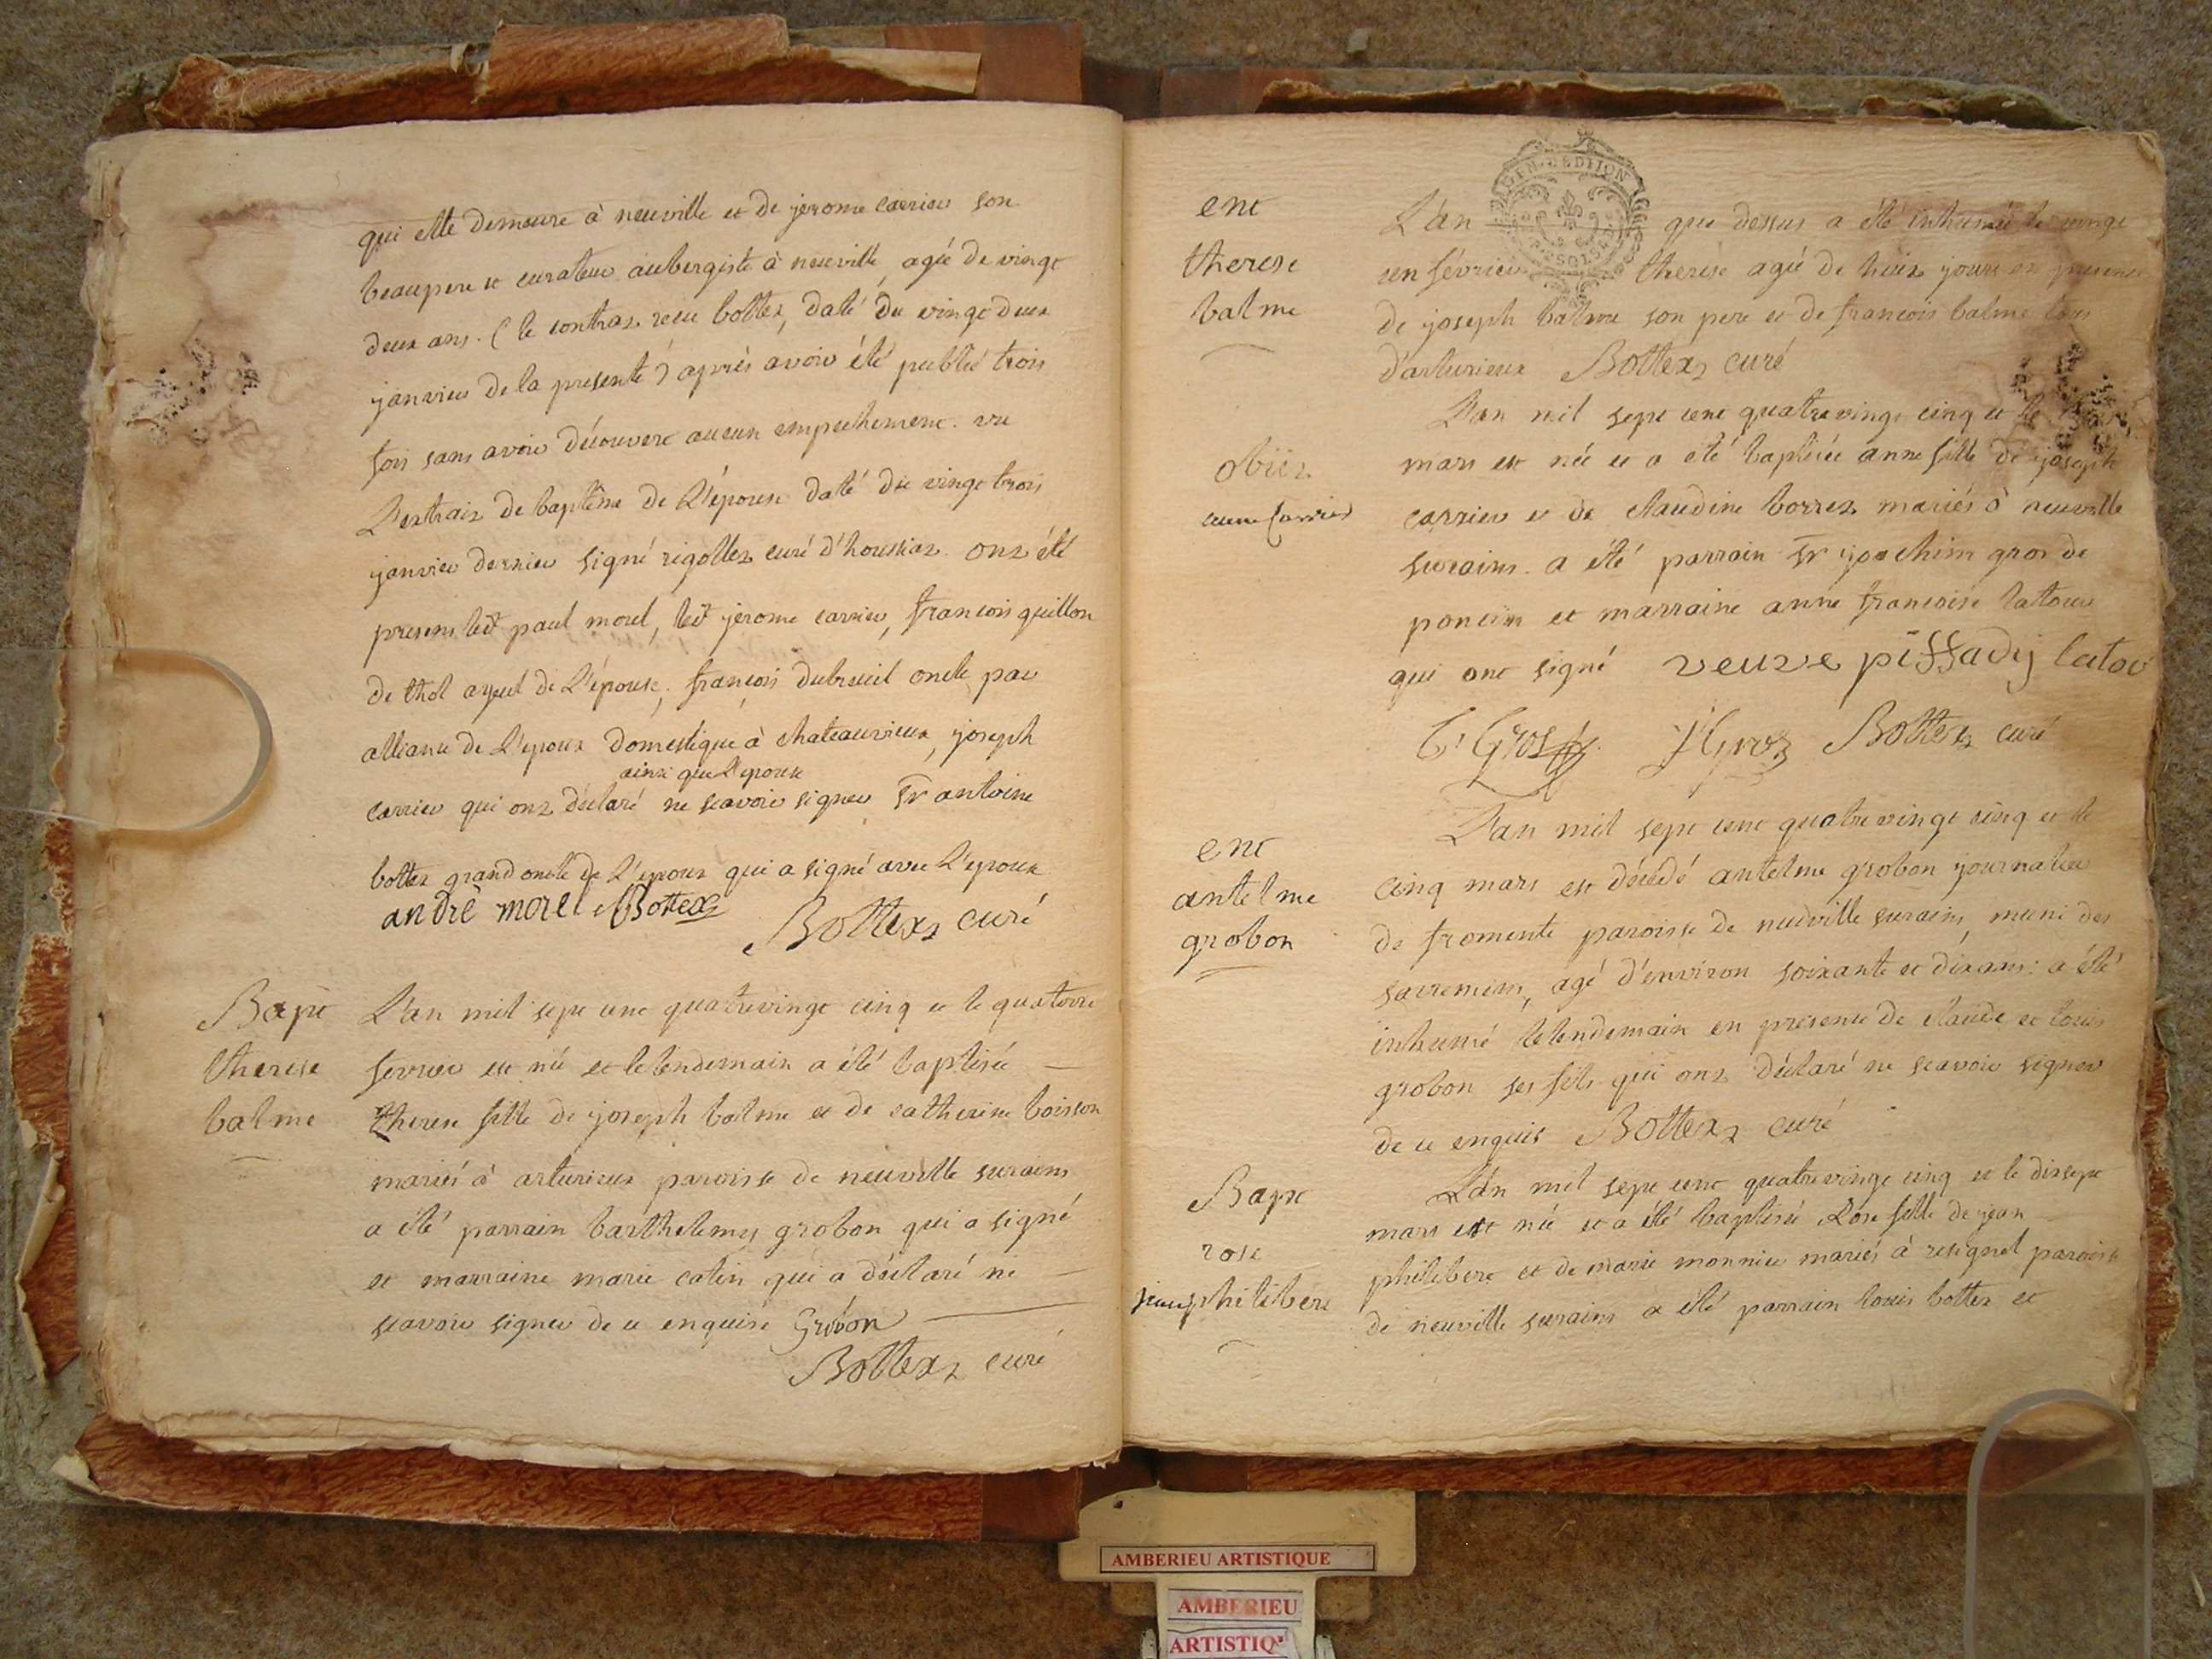 qui elle demeure à neuville et de jerome carrier son
beaupere et curateur aubergiste à neuville, agée de vingt
deux ans. ( le contrat reçu bottex, daté du vingt deux
janvier de la presente ) après avoir été publié trois
fois sans avoir découvert aucun empechement. vu
L'extrait de baptême de L'épouse daté du vingt trois
janvier dernier signé rigollet curé d'houssiat. ont été
presens ledt paul morel, ledt jerome carrier, francois guillon
de thol ayeul de L'épouse, françois dubreuil oncle par
alliance de L'epoux domestique à chateauvieux, joseph
ainsi que L'epouse
carrier qui ont déclaré ne scavoir signer Sr antoine
bottex grand oncle de L'epoux qui a signé avec L'epoux
andré morel Bottex
Bottex curé
Bapt
therese
balme
L'an mil sept cent quatrevingt cinq et le quatorze
fevrier est née et le lendemain a été baptisée
therese fille de joseph balme et de catherine boisson
mariés à arturieux paroisse de neuville surains
a été parrain barthelemy grobon qui a signé
et marraine marie catin qui a déclaré ne
scavoir signer de ce enquise Gröbon
Bottex curé
GEN. DE DIJON
ent
therese
balme
L'an que dessus a été inhumée le vingt
un février therèse agée de huit jours en presence
de joseph balme son pere et de francois balme tous
d'arturieux Bottex curé
obiit
anne Carrier
L'an mil sept cent quatrevingt cinq et le
mars est née et a été baptisée anne fille de joseph
carrier et de claudine borrez mariés à neuville
surains. a été parrain Sr joachim gros de
poncin et marraine anne francoise latour
qui ont signé veuve piffady latou
Gros J Gros Bottex curé
ent
antelme
grobon
L'an mil sept cent quatrevingt cinq et le
cinq mars est décédé antelme grobon journalier
de fromente paroisse de neuville surains, muni des
sacremens, agé d'environ soixante et dix ans: a été
inhumé le lendemain en presence de claude et louis
grobon ses fils qui ont déclaré ne scavoir signer
de ce enquis Bottex curé
Bapt
rose
jean philibert
L'an mil sept cent quatrevingt cinq et le dixsept
mars est née et a été baptisée Rose fille de jean
philibert et de marie monnier mariés à resignel paroisse
de neuville surains a été parrain louis bottex et
AMBERIEU ARTISTIQUE
AMBERIEU
ARTISTIQ